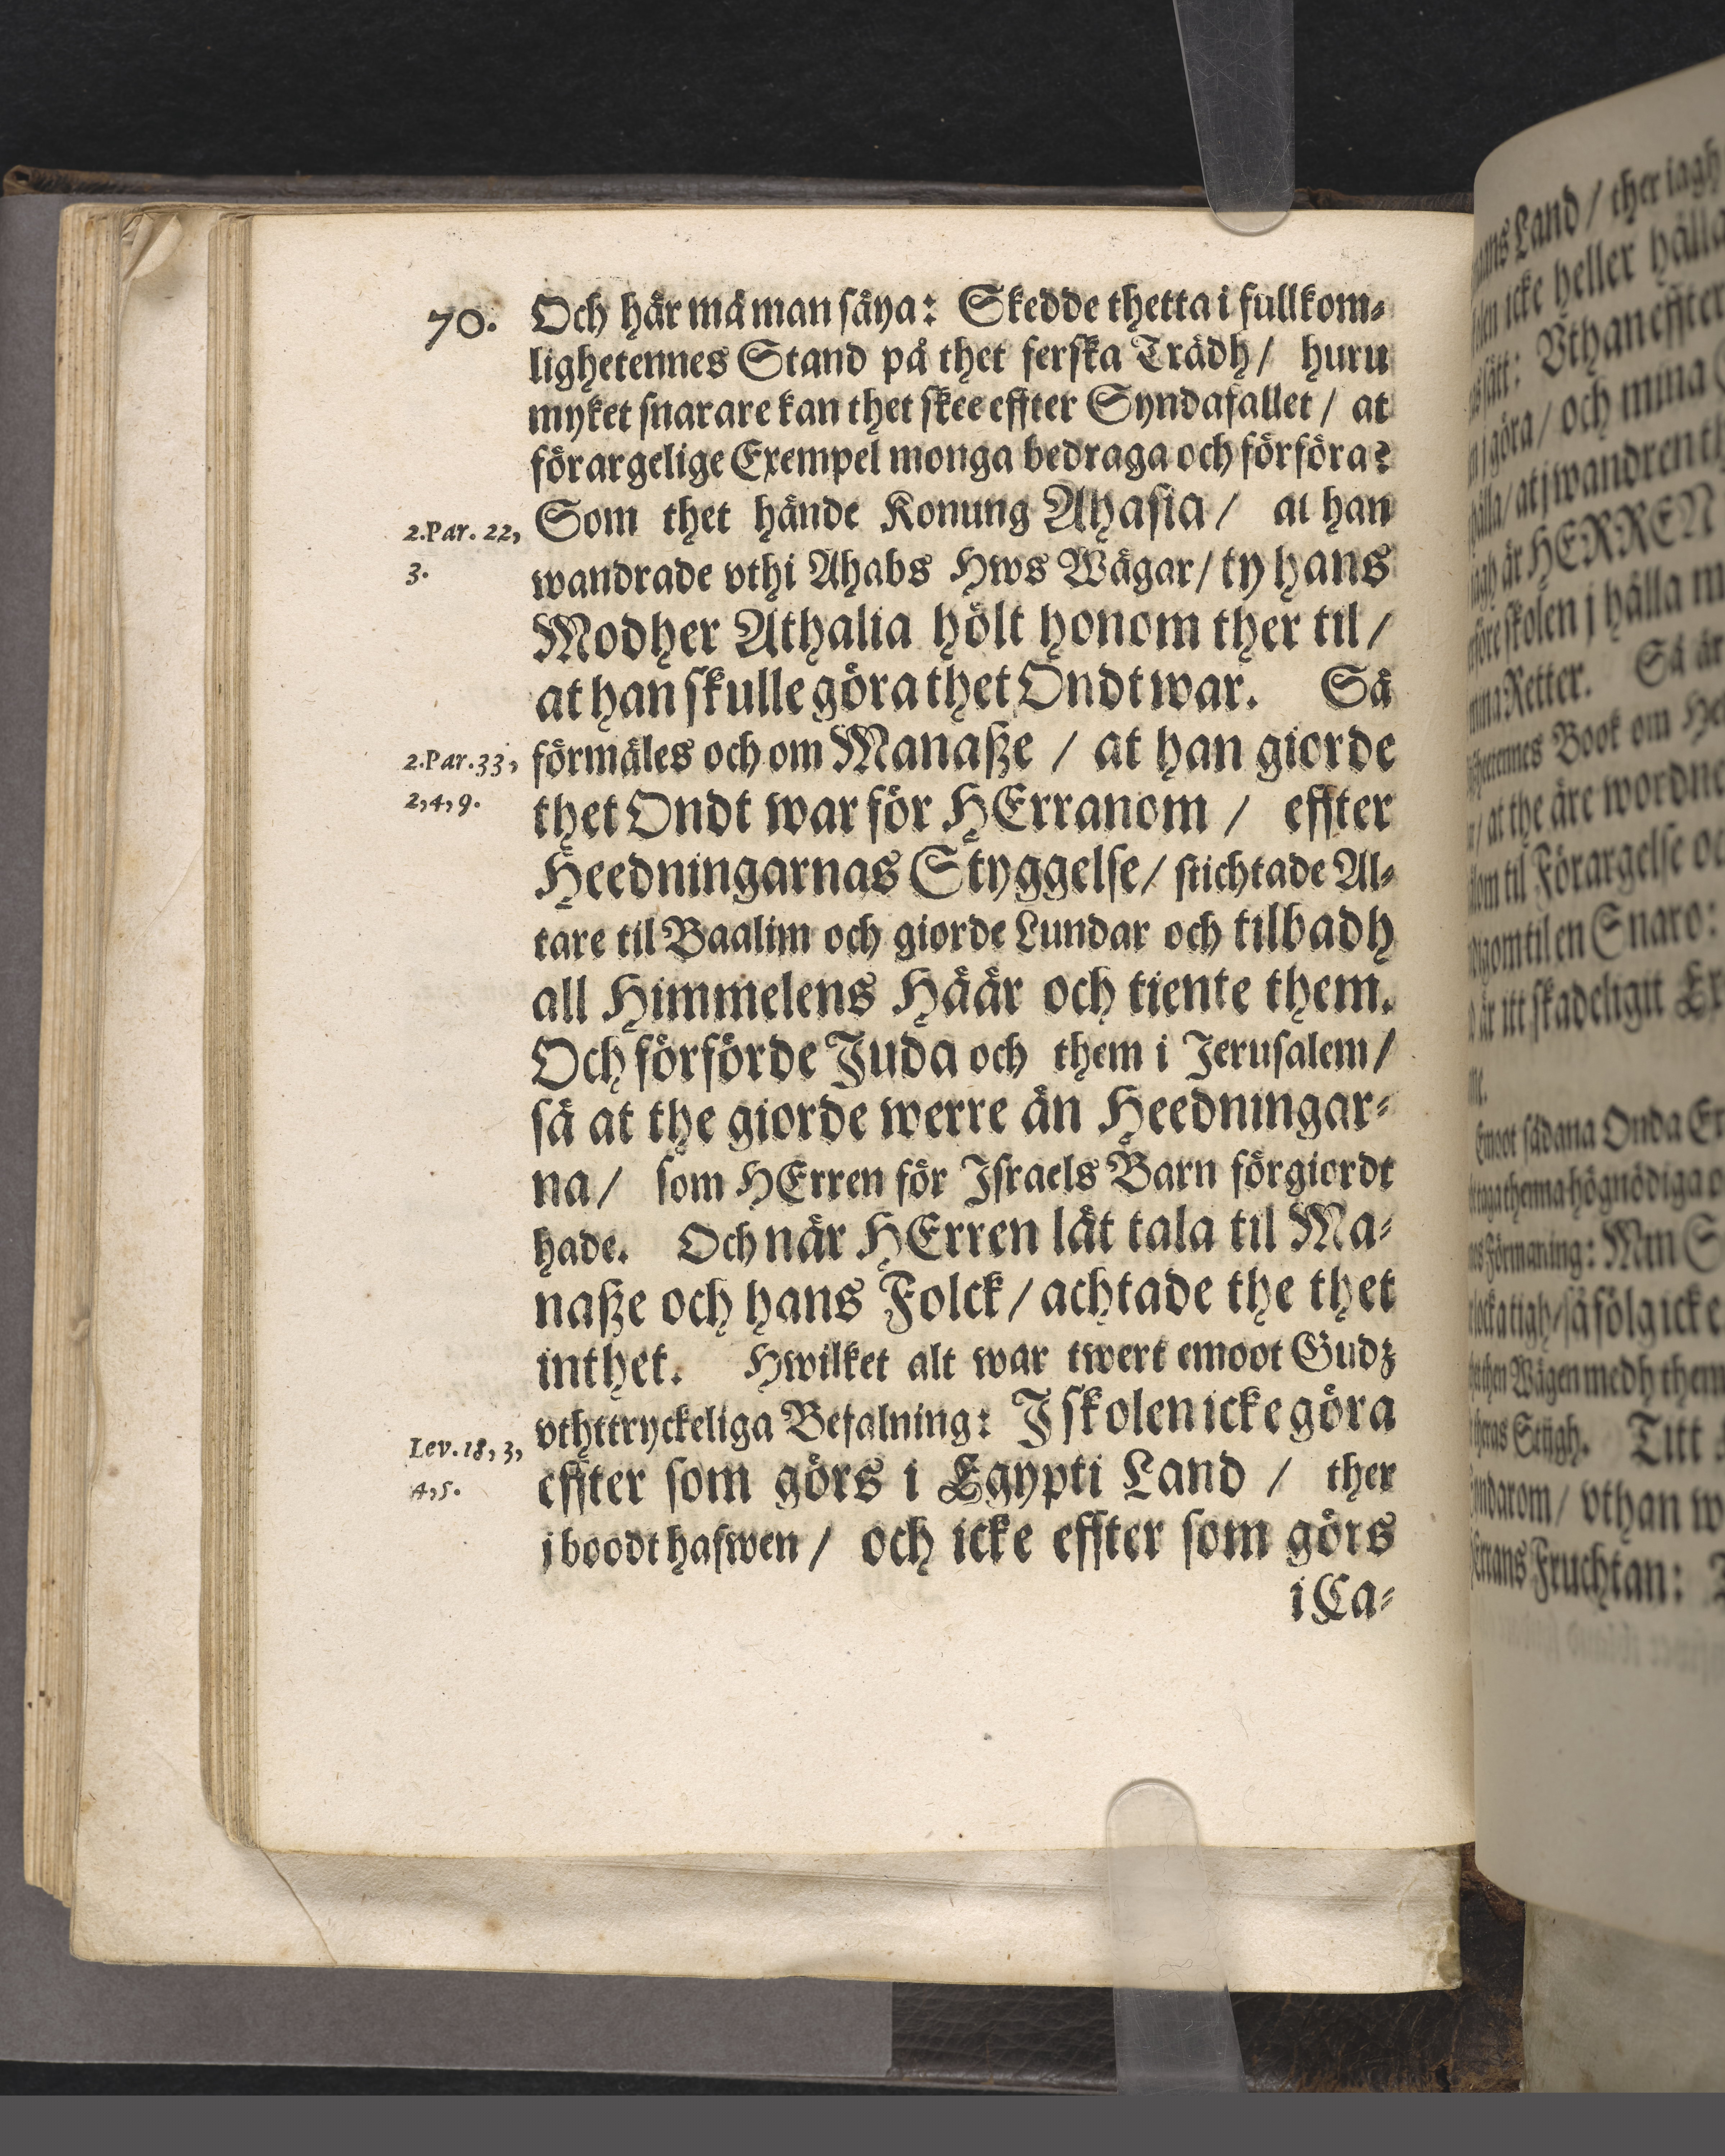 70. Och här må man säya: Skedde thetta i fullkom-
lighetennes Stand på thet ferska Trädh/ huru
myket snarare kan thet skee effter Syndafallet/ at
förargelige Exempel monga bedraga och förföra?
2.Par. 22, Som thet hände Konung Ahasia/ at han
3. wandrade vthi Ahabs Hws Wägar/ ty hans
Modher Athalia hölt honom ther til/
at han skulle göra thet Ondt war. Så
2.Par.33, förmäles och om Manaße/ at han giorde
2,4,9. thet Ondt war för HErranom/ effter
Heedningarnas Styggelse/ stichtade Al-
tare til Baalim och giorde Lundar och tilbadh
all Himmelens Häär och tiente them.
Och förförde Juda och them i Jerusalem/
så at the giorde werre än Heedningar-
na/ som HErren för Israels Barn förgiordt
hade. Och när HErren lät tala til Ma-
naße och hans Folck/ achtade the thet
inthet. Hwilket alt war twert emoot Gudz
vthttryckeliga Befalning: J skolen icke göra
Lev.18,3, effter som görs i Egypti Land/ ther
4,5. j boodt hafwen/ och icke effter som görs
i Ca-
ans Land/ ther iagh
icke heller hålla
sätt: Vthan effter
j göra/ och mina
hålla/ at j wandren
iagh är HERREN
skolen j hålla
Retter. Så är
Book om
at the äre wordne
til Förargelse
til en Snaro:
är itt skadeligit
Emoot sådana Onda
thenna högnödiga
Förmaning: Min
tigh/ så fölg icke
then Wägen medh them
theras Stigh. Titt
vthan
Fruchtan: